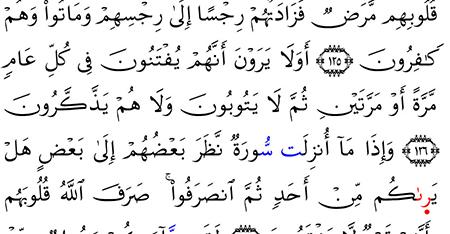 قُلُوبِهِم مَّرَضٌ فَزَادَتْهُمْ رِجْسًا إِلَىٰ رِجْسِهِمْ وَمَاتُوا۟ وَهُمْ
كَـٰفِرُونَ ١٢٥ أَوَلَا يَرَوْنَ أَنَّهُمْ يُفْتَنُونَ فِى كُلِّ عَامٍ
مَّرَّةً أَوْ مَرَّتَيْنِ ثُمَّ لَا يَتُوبُونَ وَلَا هُمْ يَذَّكَّرُونَ
١٢٦ وَإِذَا مَآ أُنزِلَت سُّورَةٌ نَّظَرَ بَعْضُهُمْ إِلَىٰ بَعْضٍ هَلْ
يَرىٰكُم مِّنْ أَحَدٍ ثُمَّ ٱنصَرَفُوا۟ ۚ صَرَفَ ٱللَّهُ قُلُوبَهُم